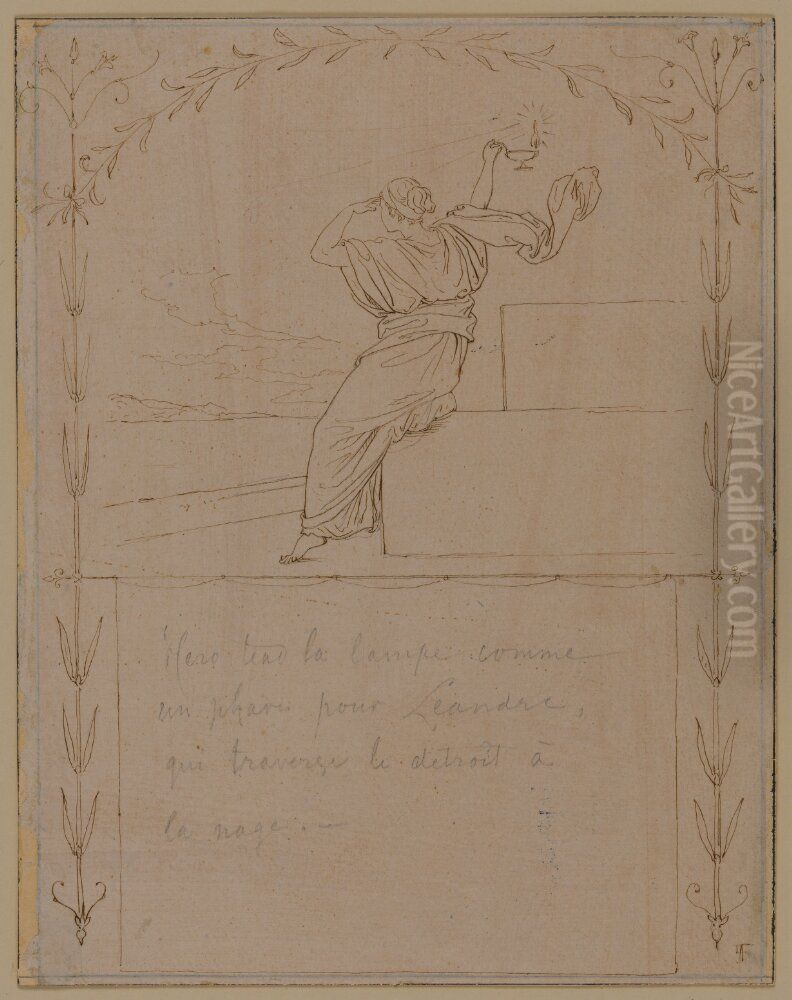 Hero tend la lampe comme
un phare pour Léandre,
qui traverse le détroit à
la nage. —
NiceArtGallery.com